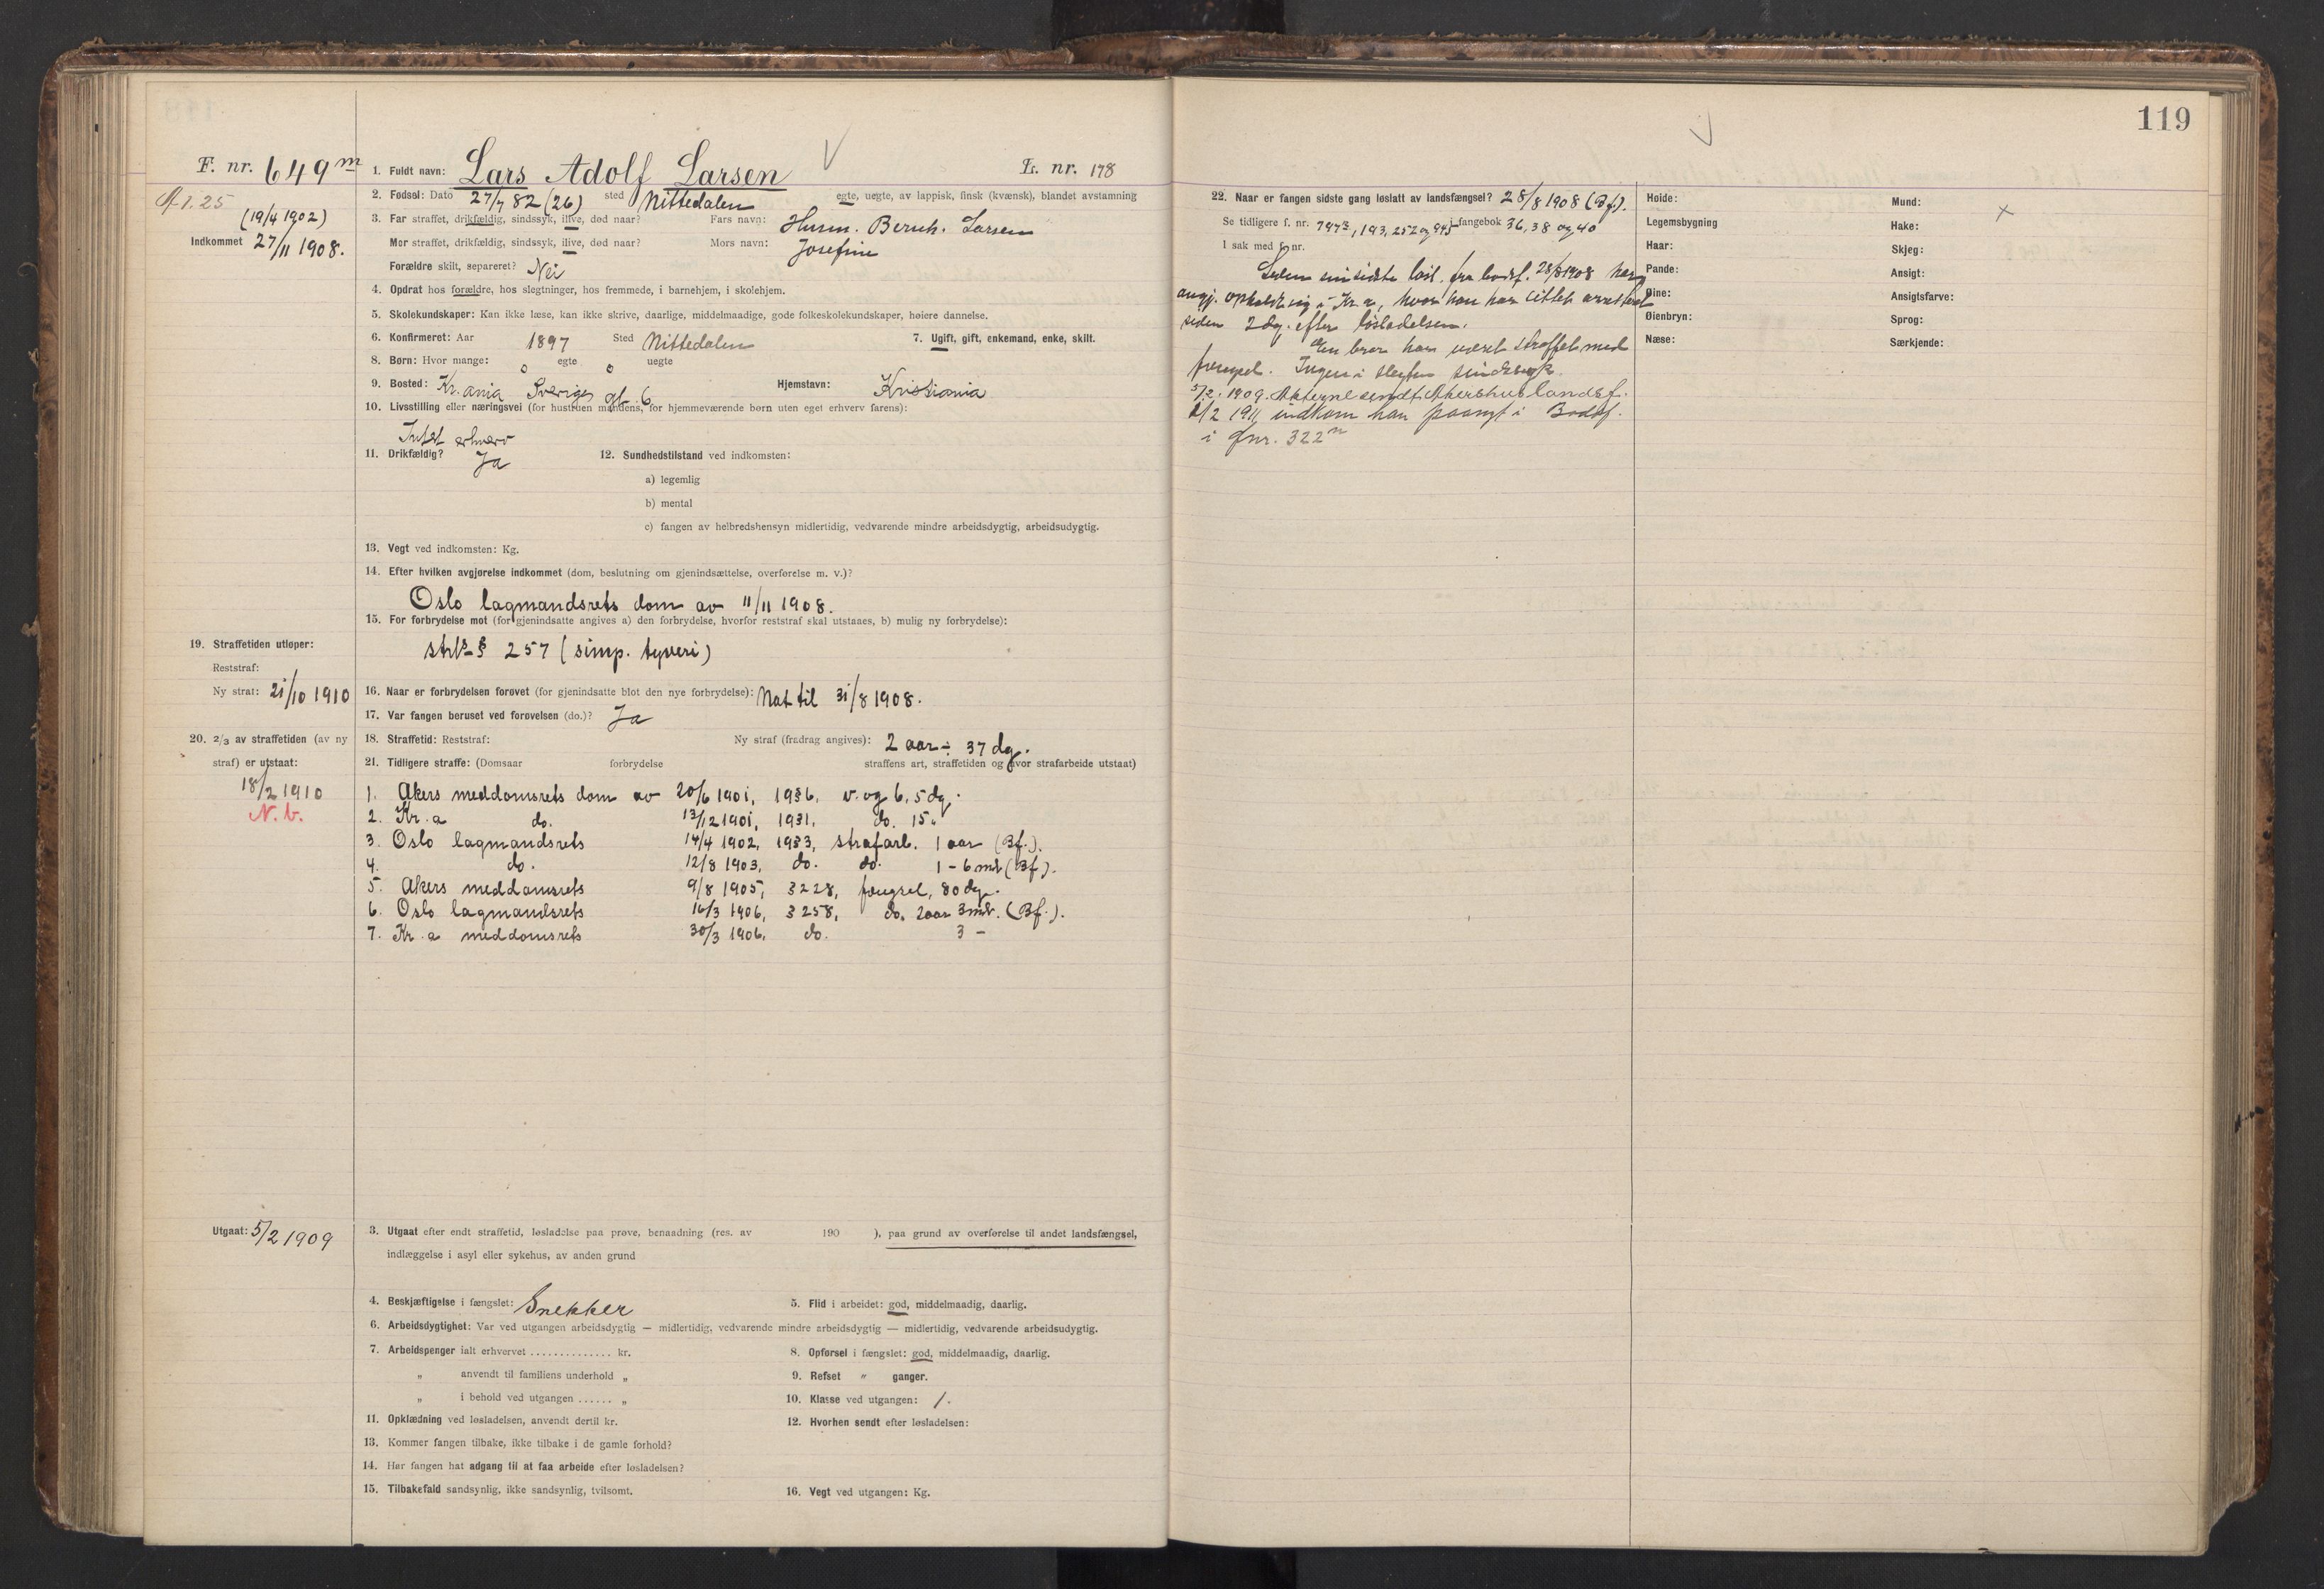 119
F. nr. 649 m
1. Fuldt navn: Lars Adolf Larsen
L. nr. 178
(19/4 1902)
Indkommet 27/11 1908.
2. Fødsel: Dato 27/7 82 (26) sted Nittedalen egte, uegte, av lappisk, finsk (kvænsk), blandet avstamning
3. Far straffet, drikfældig, sindssyk, ilive, død naar? Fars navn: Husm. Bernh. Larsen
Mor straffet, drikfældig, sindssyk, ilive, død naar? Mors navn: Josefine
Forældre skilt, separeret? Nei
4. Opdrat hos forældre, hos slegtninger, hos fremmede, i barnehjem, i skolehjem.
5. Skolekundskaper: Kan ikke læse, kan ikke skrive, daarlige, middelmaadige, gode folkeskolekundskaper, høiere dannelse.
6. Konfirmeret: Aar 1897 Sted Nittedalen 7. Ugift, gift, enkemand, enke, skilt.
8. Børn: Hvor mange: 0 egte 0 uegte
9. Bosted: Kr.ania Sveriges gt. 6 Hjemstavn: Kristiania
10. Livsstilling eller næringsvei (for hustruen mandens, for hjemmeværende børn uten eget erhverv farens):
Intet erhverv
11. Drikfældig? Ja 12. Sundhedstilstand ved indkomsten:
a) legemlig
b) mental
c) fangen av helbredshensyn midlertidig, vedvarende mindre arbeidsdygtig, arbeidsudygtig.
13. Vegt ved indkomsten: Kg.
14. Efter hvilken avgjørelse indkommet (dom, beslutning om gjenindsættelse, overførelse m. v.)?
Oslo lagmandsrets dom av 11/11 1908.
15. For forbrydelse mot (for gjenindsatte angives a) den forbrydelse, hvorfor reststraf skal utstaaes, b) mulig ny forbrydelse):
strl's § 257 (simp. tyveri)
19. Straffetiden utløper:
Reststraf:
Ny straf: 21/10 1910
16. Naar er forbrydelsen forøvet (for gjenindsatte blot den nye forbrydelse): Nat til 31/8 1908.
17. Var fangen beruset ved forøvelsen (do.)? Ja
20. 2/3 av straffetiden (av ny
straf) er utstaat:
18/2 1910
N. b.
18. Straffetid: Reststraf: Ny straf (fradrag angives): 2 aar ÷ 37 dg.
21. Tidligere straffe: (Domsaar forbrydelse straffens art, straffetiden og hvor strafarbeide utstaat)
1. Akers meddomsrets dom av 20/6 1901, 1936, v. og b. 5 dg.
2. Kr.a do. 13/12 1901, 1931, do. 15 "
3. Oslo lagmandsrets 14/4 1902, 1933, strafarb. 1 aar (Bf.).
4. do. 12/8 1903, do. do. 1 - 6 mdr (Bf).
5. Akers meddomsrets 9/8 1905, 3228, fængsel, 80 dg.
6. Oslo lagmandsrets 16/3 1906, 3258, do. 2 aar 3 mdr. (Bf.).
7. Kr.a meddomsrets 30/3 1906, do. 3 -
Utgaat: 5/2 1909
3. Utgaat efter endt straffetid, løsladelse paa prøve, benaadning (res. av 190 ), paa grund av overførelse til andet landsfængsel,
indlæggelse i asyl eller sykehus, av anden grund
4. Beskjæftigelse i fængslet: Snekker 5. Flid i arbeidet: god, middelmaadig, daarlig.
6. Arbeidsdygtighet: Var ved utgangen arbeidsdygtig — midlertidig, vedvarende mindre arbeidsdygtig — midlertidig, vedvarende arbeidsudygtig.
7. Arbeidspenger ialt erhvervet .............. kr. 8. Opførsel i fængslet: god, middelmaadig, daarlig.
" anvendt til familiens underhold " 9. Refset " ganger.
" i behold ved utgangen ...... " 10. Klasse ved utgangen: 1.
11. Opklædning ved løsladelsen, anvendt dertil kr. 12. Hvorhen sendt efter løsladelsen:
13. Kommer fangen tilbake, ikke tilbake i de gamle forhold?
14. Har fangen hat adgang til at faa arbeide efter løsladelsen?
15. Tilbakefald sandsynlig, ikke sandsynlig, tvilsomt. 16. Vegt ved utgangen: Kg.
22. Naar er fangen sidste gang løslatt av landsfængsel? 28/8 1908 (Bf.).
Se tidligere f. nr. 193, 252 og 945 i fangebok 36, 38 og 40
I sak med f. nr.
Siden sin sidste løsl. fra bodsf. 28/8 1908 har
angj. opholdt sig i Kr.a, hvor han har sittet arrestert
siden 2 dg. efter løsladelsen.
En bror har været straffet med
fængsel. Ingen i slegten sindssyk.
5/2 1909. Akterne sendt Akershus landsf.
2/2 1911 indkom han paanyt i Bodsf.
i fnr. 322 m
Høide:
Legemsbygning
Haar:
Pande:
Øine:
Øienbryn:
Næse:
Mund:
Hake:
Skjeg:
Ansigt:
Ansigtsfarve:
Sprog:
Særkjende: